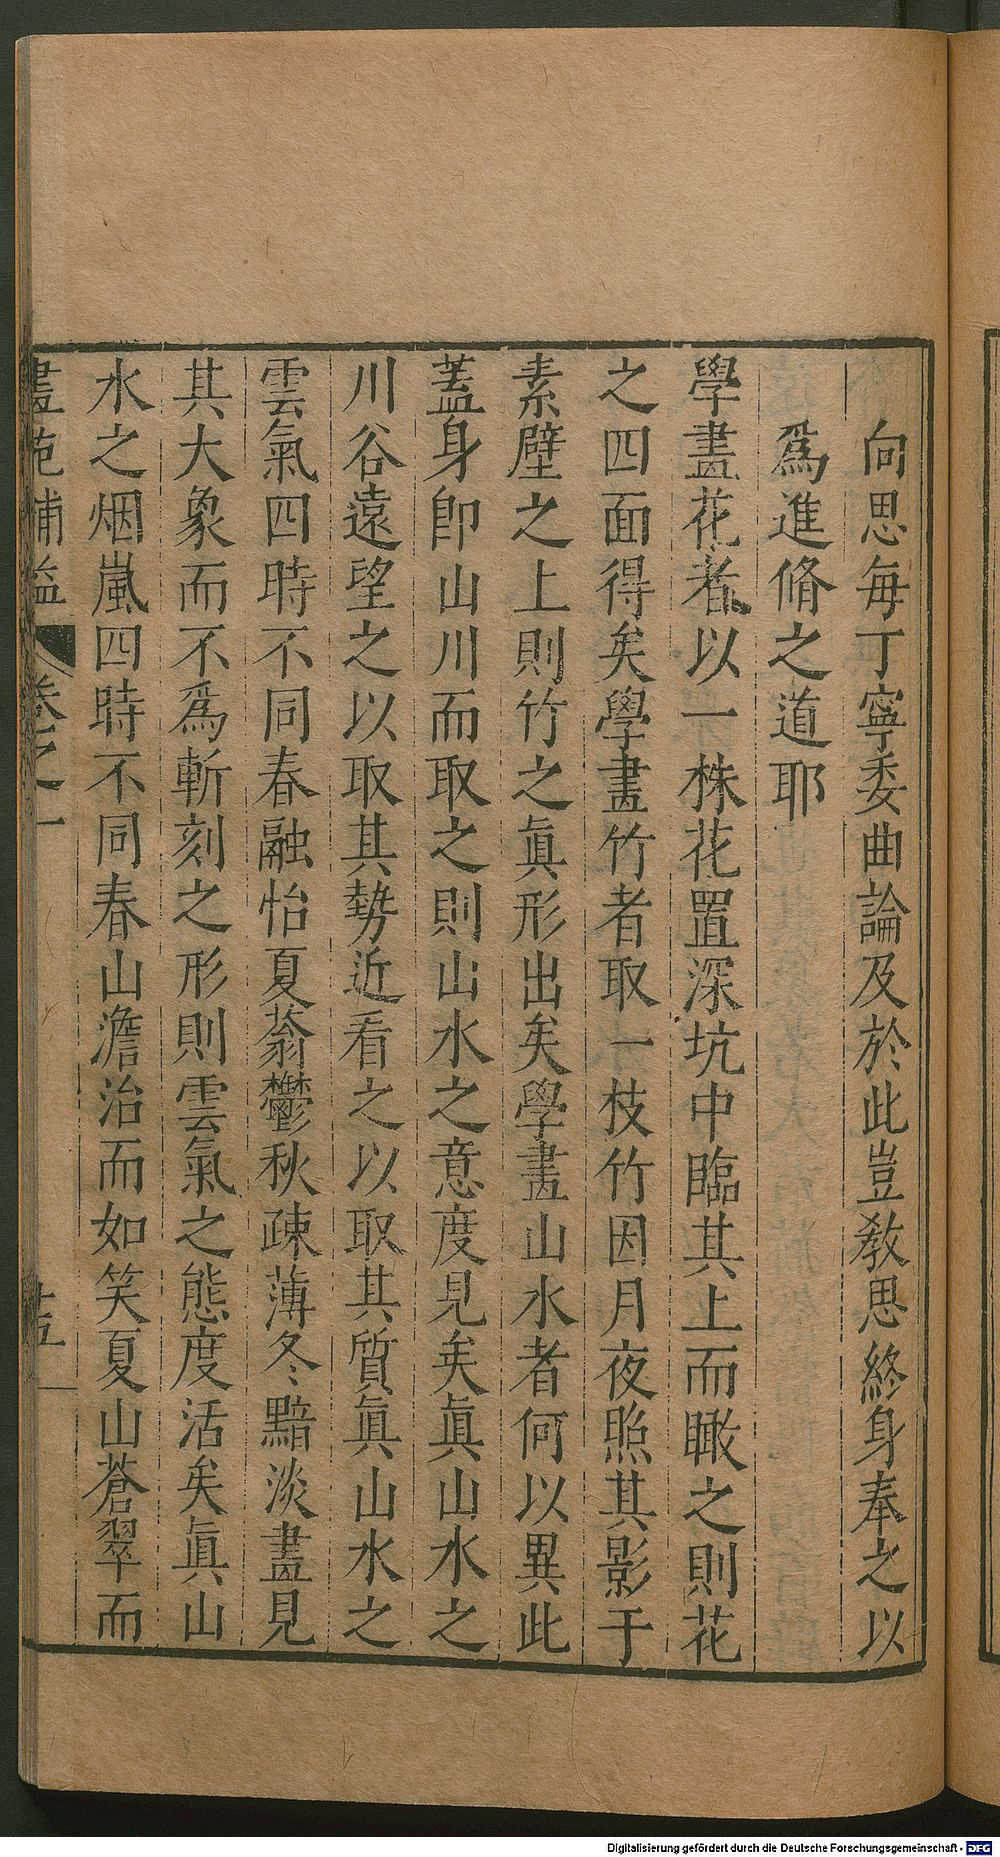 向思每丁寧委曲論及於此豈敎思終身奉之以
爲進脩之道耶
學畫花者以一株花置深坑中臨其上而瞰之則花
之四面得矣學畫竹者取一枝竹因月夜照其影于
素壁之上則竹之眞形出矣學畫山水者何以異此
葢身卽山川而取之則山水之意度見矣眞山水之
川谷遠望之以取其勢近看之以取其質眞山水之
雲氣四時不同春融怡夏蓊鬱秋疎薄冬黯淡畫見
其大象而不爲斬刻之形則雲氣之態度活矣眞山
水之烟嵐四時不同春山澹冶而如笑夏山蒼翠而
畫苑補益 卷之一 廿五
Digitalisierung gefördert durch die Deutsche Forschungsgemeinschaft - DFG